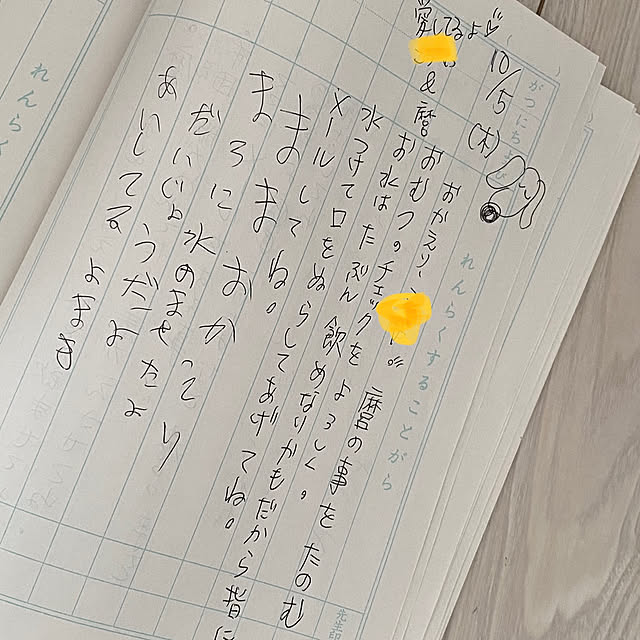 がつにち
10/5(木)
ひ
れんらくすることがら
愛してるよ♡
&麿
おかえり〜
麿の事をたのむ
おむつのチェックをよろしく。
お水はたぶん飲めないかもだから指に
水つけて口をぬらしてあげてね。
メールしてね。
まま おかえり
まろに水のませたよ
だいじょうぶだよ
あいしてるよ
先生印
れんらく